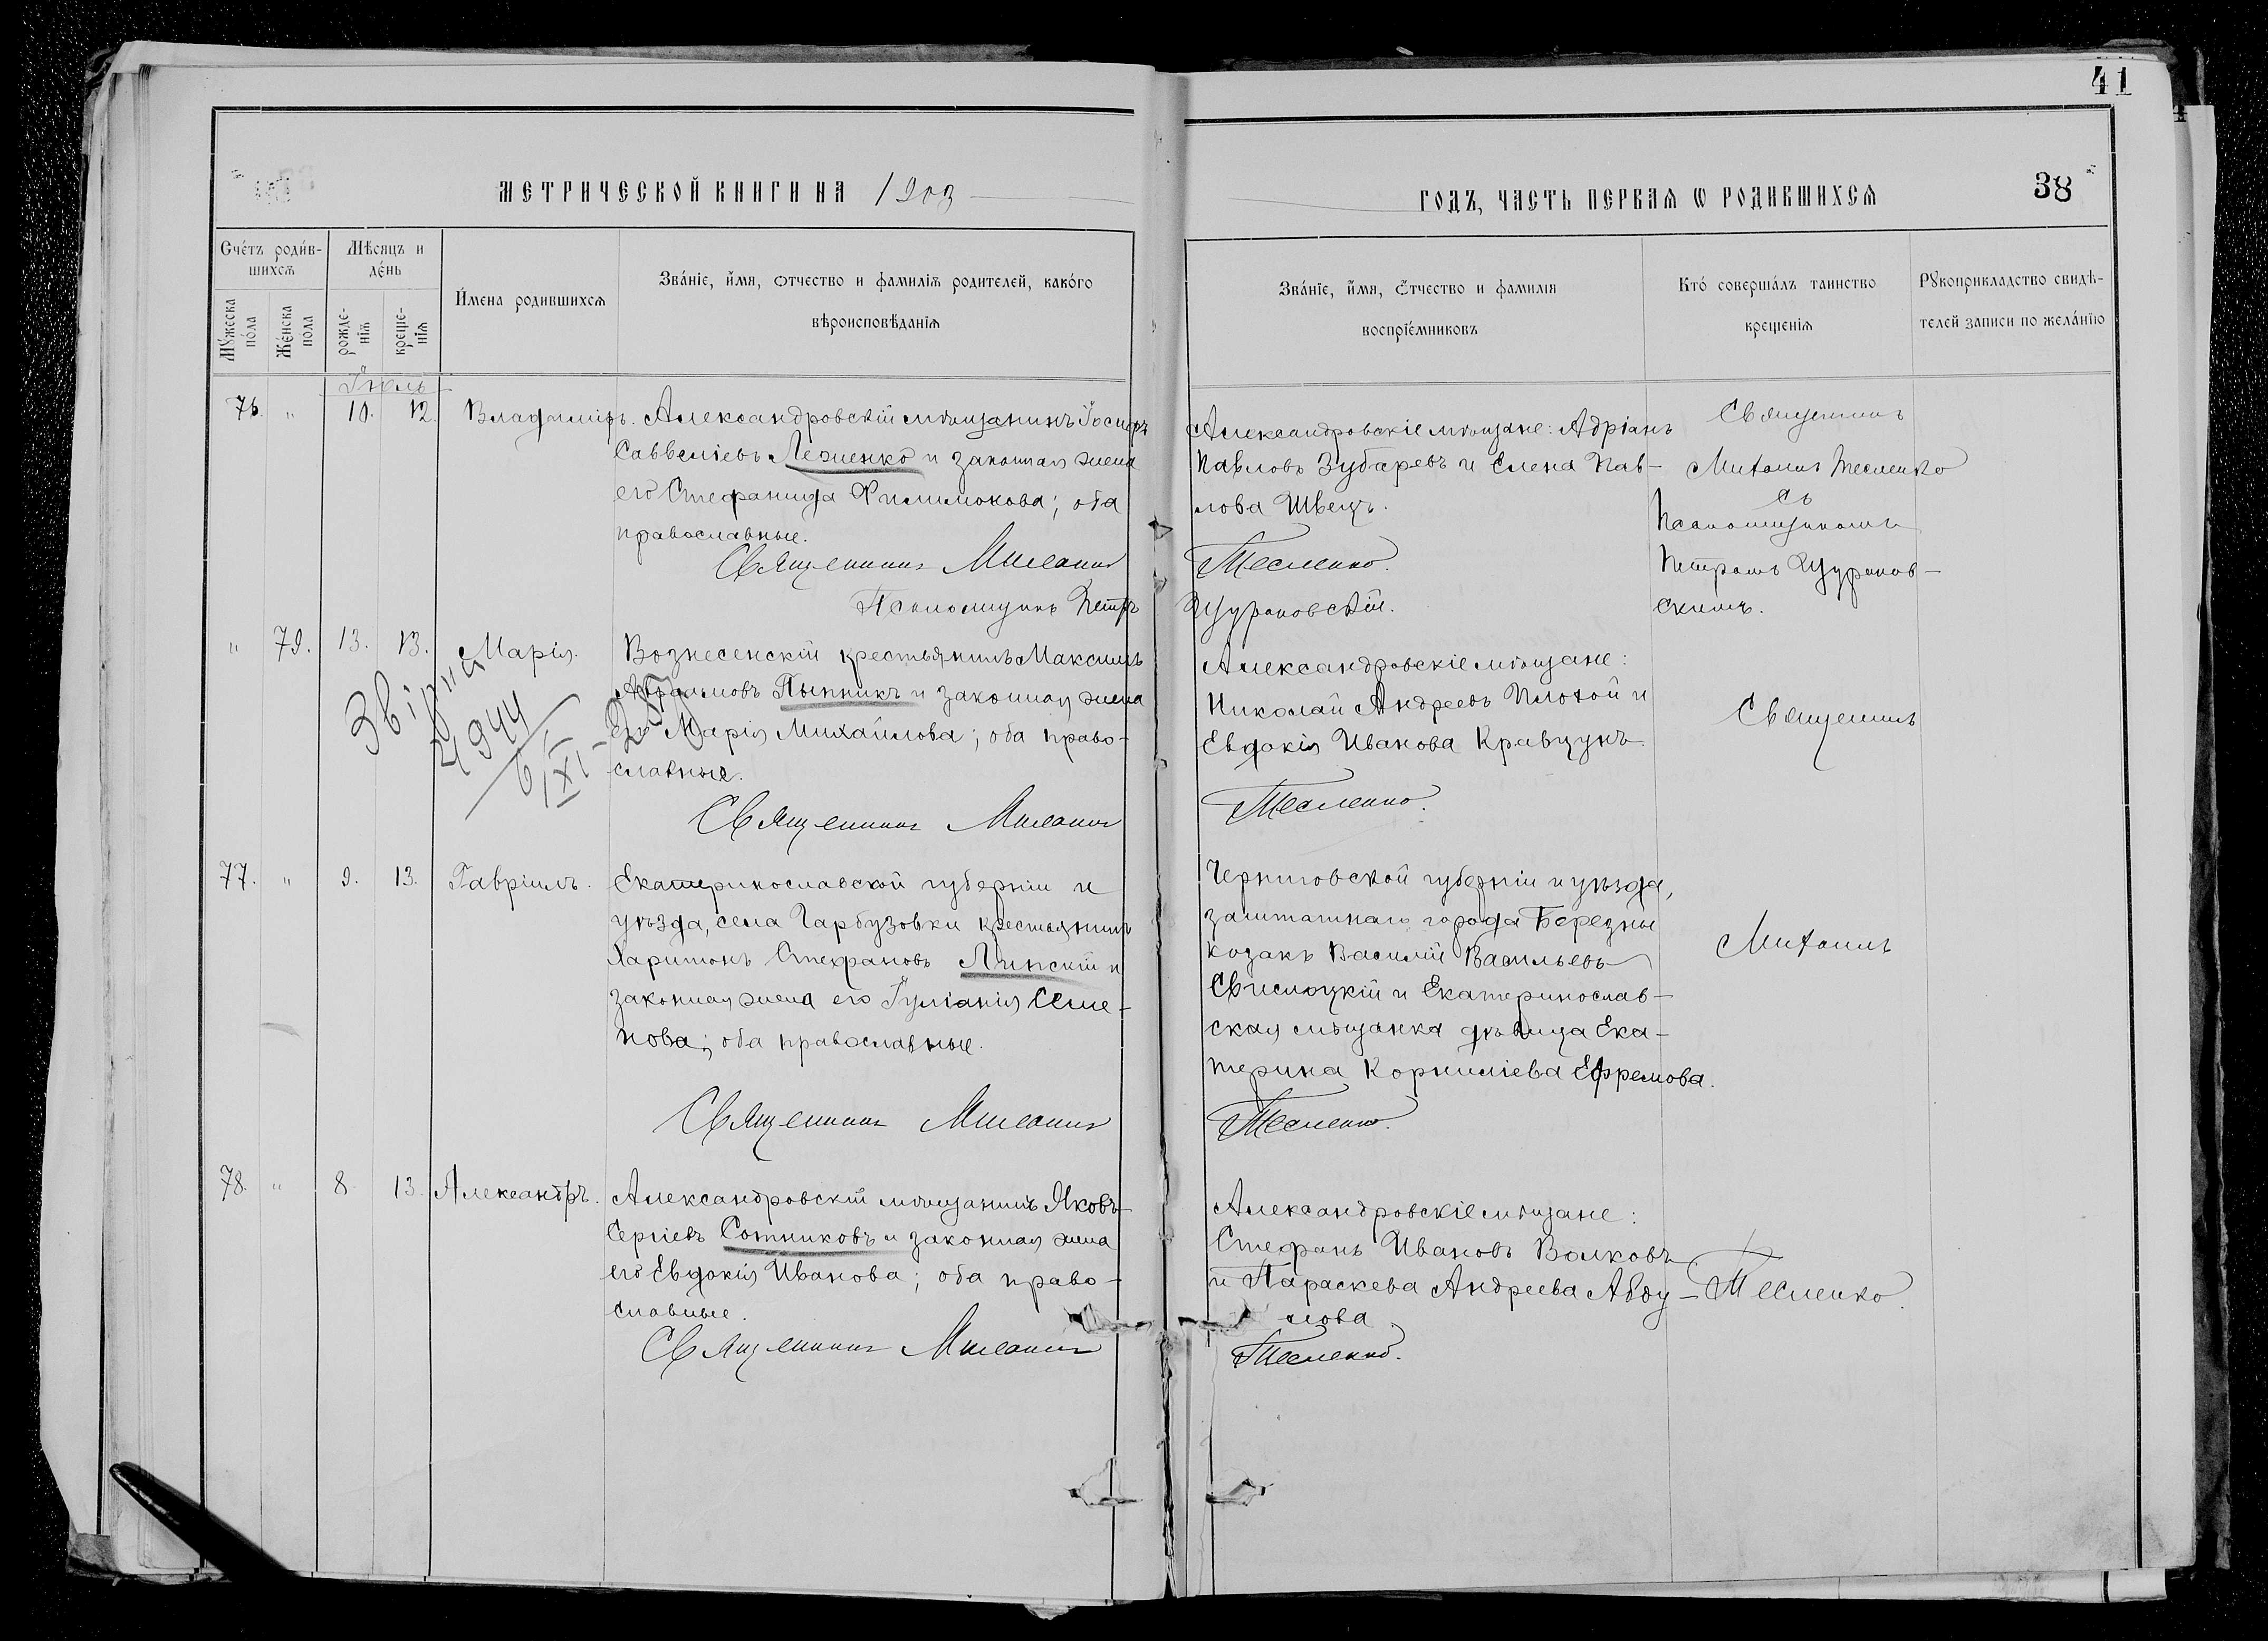 41
МЕТРИЧЕСКОЙ КНИГИ НА 1903
ГОДЪ, ЧАСТЬ ПЕРВАЯ Ѡ РОДИВШИХСЯ
38
Счетъ родив-
шихся
Мѣсяцъ и
день
Мужеска
пола
Женска
пола
рожде-
нія
креще-
нія
Имена родившихся
Званіе, имя, отчество и фамилія родителей, какого
вѣроисповѣданія
Званіе, имя, отчество и фамилія
воспріемниковъ
Кто совершалъ таинство
крещенія
Рукоприкладство свидѣ-
телей записи по желанію
Іюль
76. " 10. 12. Владиміръ. Александровскій мѣщанинъ Іосифъ
Савве́ліевъ Леженко и законная жена
его Стефанида Филимонова; оба
православные.
Священникъ Михаилъ
Псаломщикъ Петръ
Александровскіе мѣщане: Адріанъ
Павловъ Зубаревъ и Елена Пав-
лова Швецъ.
Тесленко.
Цурановскій.
Священникъ
Михаилъ Тесленко
съ
Псаломщикомъ
Петромъ Цуранов-
скимъ.
" 79. 13. 13. Марія. Вознесенскій крестьянинъ Максимъ
Абрамовъ Пынникъ и законная жена
его Марія Михайлова; оба право-
славные.
Священникъ Михаилъ
Александровскіе мѣщане:
Николай Андреевъ Плохой и
Евдокія Иванова Кравцунъ.
Тесленко.
Священникъ
77. " 9. 13. Гавріилъ. Екатеринославской губерніи и
уѣзда, села Гарбузовки крестьянинъ
Харитонъ Стефановъ Липскій и
законная жена его Іуліанія Семе-
нова; оба православные.
Священникъ Михаилъ
Черниговской губерніи и уѣзда,
заштатнаго города Березны
козакъ Василій Васильевъ
Свислоцкій и Екатеринослав-
ская мѣщанка дѣвица Ека-
терина Корниліева Ефремова.
Тесленко.
Михаилъ
78. " 8 13. Александръ. Александровскій мѣщанинъ Яковъ
Сергіевъ Сотниковъ и законная жена
его Евдокія Иванова; оба право-
славные.
Священникъ Михаилъ
Александровскіе мѣщане:
Стефанъ Ивановъ Волковъ
и Параскева Андреева Абду-
лова
Тесленко.
Тесленко.